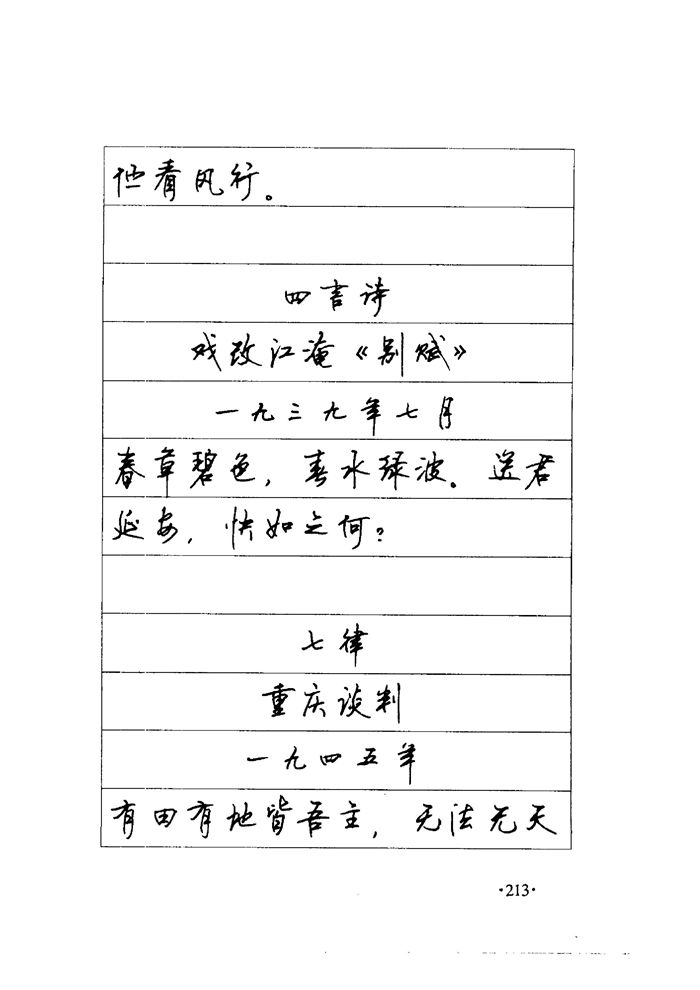 他看风行。
四言诗
戏改江淹《别赋》
一九三九年七月
春草碧色，春水绿波。送君
延安，快如之何？
七律
重庆谈判
一九四五年
有田有地皆吾主，无法无天
·213·